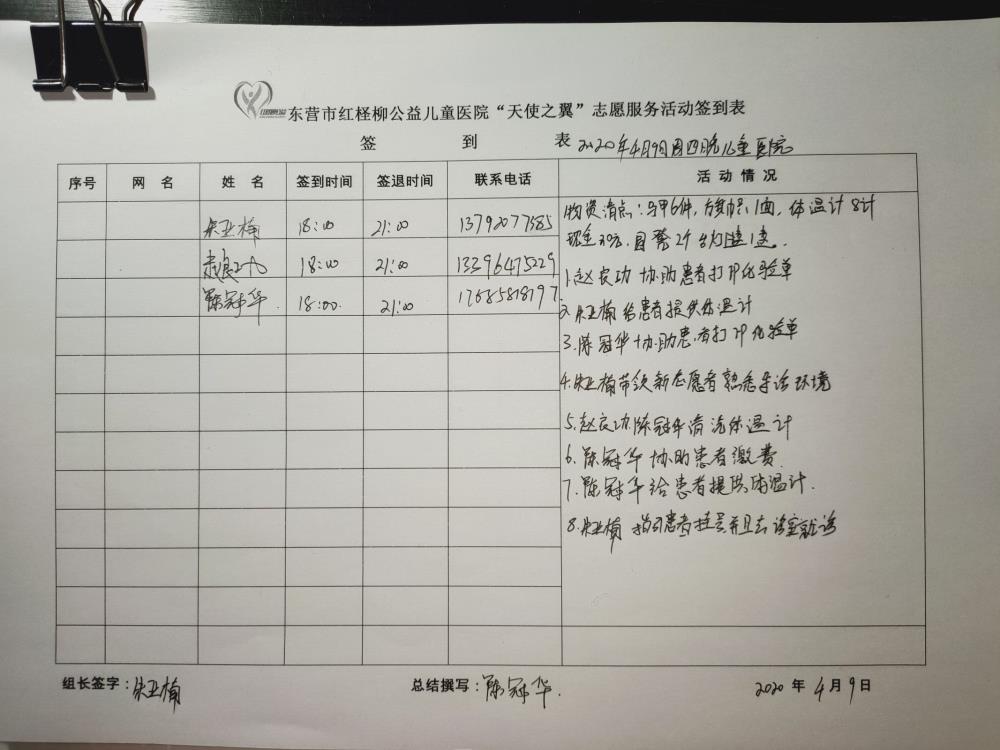 东营市红柽柳公益儿童医院“天使之翼”志愿服务活动签到表
签 到 表 2020年4月9日周四晚儿童医院
序号 网 名 姓 名 签到时间 签退时间 联系电话 活 动 情 况
朱亚楠 18:00 21:00 13792077385
18:00 21:00 13396475229
陈冠华 18:00. 21:00 17685818797
物资清点:马甲6件, 1面,体温计8计
现金30元,
1.赵良功 协助患者打印化验单
2.朱亚楠给患者提供体温计
3.陈冠华协助患者打印化验单
4.朱亚楠带领新志愿者熟悉导诊环境
5.赵良功.陈冠华清洗体温计
6.陈冠华协助患者缴费
7.陈冠华给患者提供体温计.
8.朱亚楠 指引患者挂号并且去诊室就诊
组长签字:朱亚楠 总结撰写:陈冠华. 2020 年 4 月 9 日